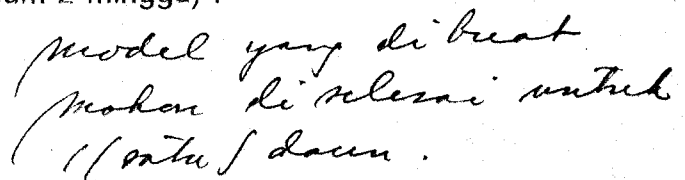 2 minggu) .
model yang di buat
mohon di selesai untuk
1 (satu) daun .